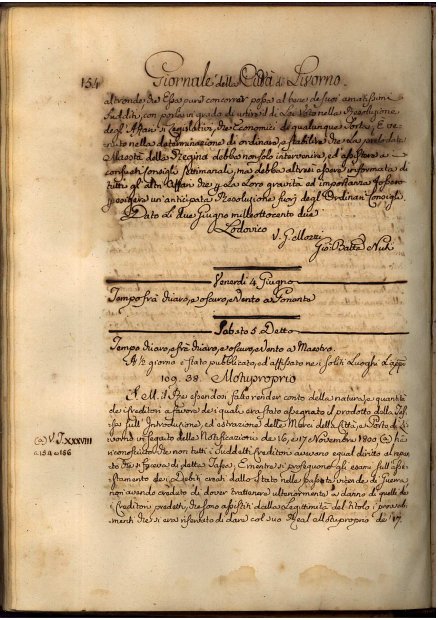 154 Giornale della Città di Livorno
altronde, che Essa pure concorrer possa al bene de suoi amatissimi
Sudditi, con porla in grado di il di Lei Voto nella Resoluzione
degli Affari sì Legislativi, che Economici di qualunque Sorta, E ve=
nuto nella determinazione di ordinare, e stabilire che la prelodata
Maestà della Regina debba non solo intervenire, ed assistere a
consueti Consigli Settimanali, ma debba altresì essere informata di
tutti gli altri Affari che per la Loro gravità ed importanza fossero
per esigere un'anticipata Resoluzione fuori degli Ordinari Consigli.
Dato li due Giugno milleottocento due
Lodovico
V. G.
Gio: Batta Nuti
Venerdì 4 Giugno
Tempo frà chiaro, e oscuro, e Vento a Ponente
Sabato 5 Detto
Tempo chiaro, e frà chiaro, e oscuro, e Vento a Maestro.
A ½ giorno è stato pubblicato, ed affissato ne i soliti Luoghi
109. 38. Motuproprio
S. M. il Re essendosi fatto render conto della natura, e quantità
de Creditori a favore de i quali era stato assegnato il prodotto della Tas=
sa sull' Introduzione, ed estrazione delle Merci della Città, e Porto di Li=
vorno in seguito delle Notificazioni de 16, e 17 Novembre 1800 (a) ha
riconosciuto che non tutti i suddetti Creditori avevano equal diritto al repar=
to che si faceva di detta Tassa, E mentre si proseguono gli esami sull' assi=
stamento de i Debiti creati dallo Stato nelle passate vicende di Guerra
non avendo creduto di dover trattenere ulteriormente a danno di quelli de
Creditori predetti, che sono assistiti dalla Legittimità del titolo i prove=
dimenti che si era riserbato di dare col suo Real Motuproprio de 17.
(a) V. T. XXXVIII
a 154 e 156